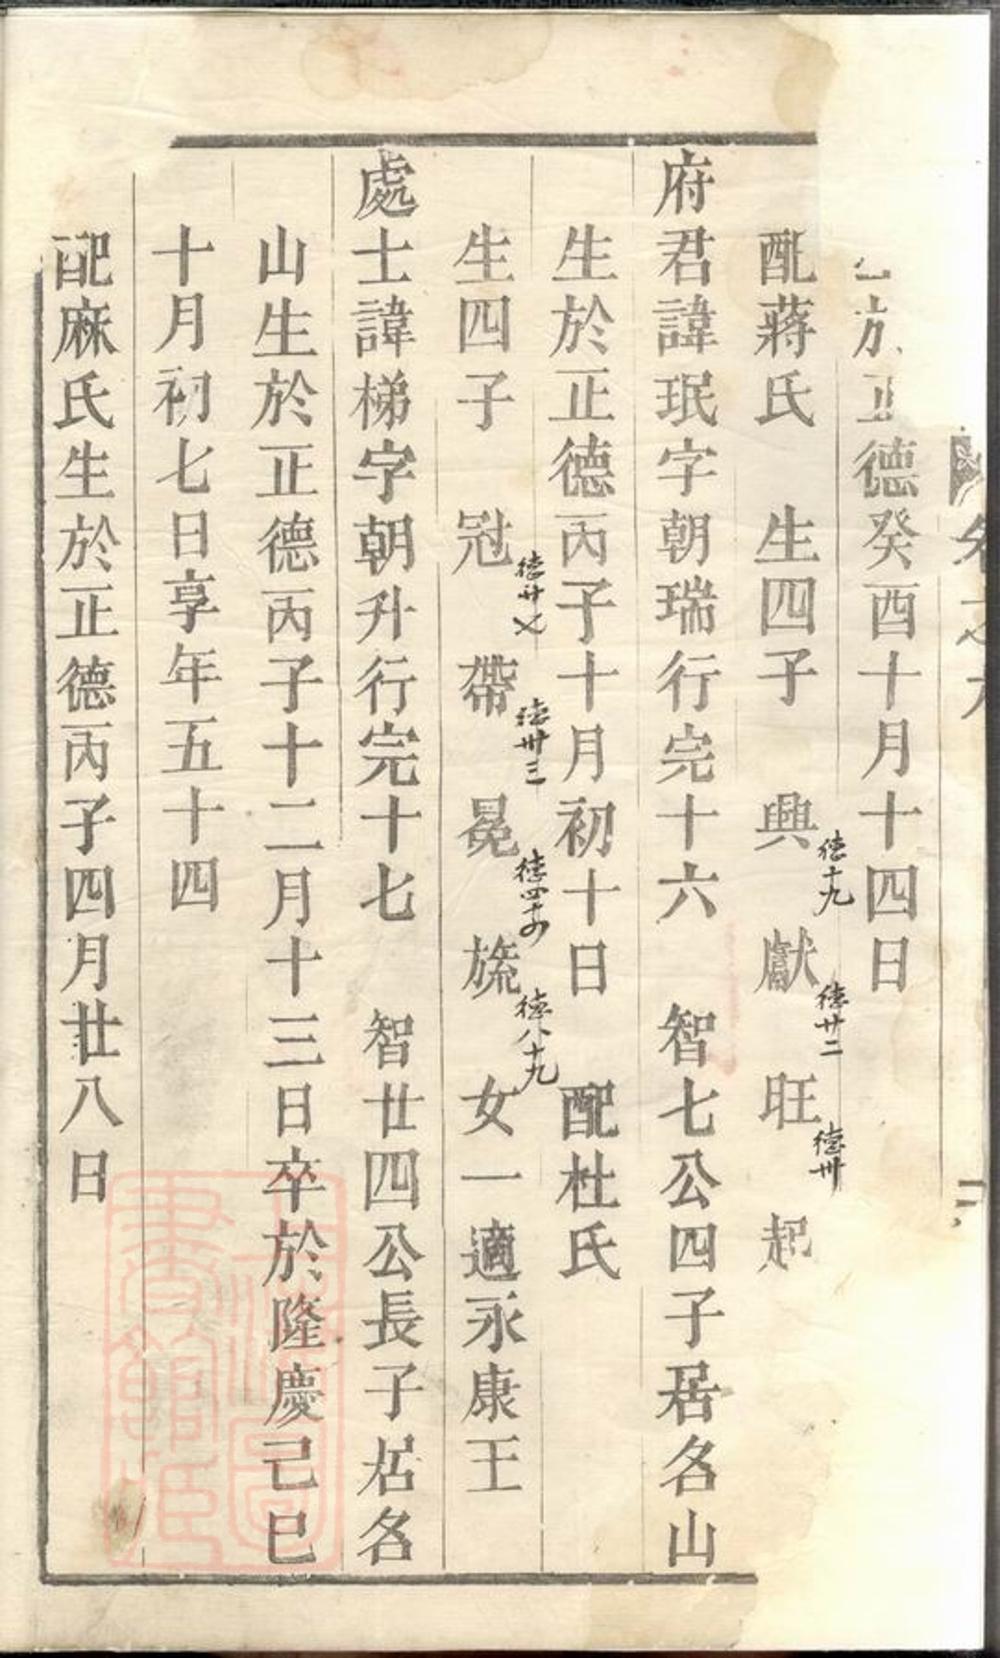 卷之九
於正德癸酉十月十四日
配蔣氏　生四子　興德十九　獻德廿二　旺德卅　起
府君諱珉字朝瑞行完十六　智七公四子居名山
生於正德丙子十月初十日　配杜氏
生四子　冠德廿乂　帶德卅三　冕德四十　旒德八十九　女一適永康王
處士諱梯字朝升行完十七　智廿四公長子居名
山生於正德丙子十二月十三日卒於隆慶己巳
十月初七日享年五十四
配麻氏生於正德丙子四月廿八日